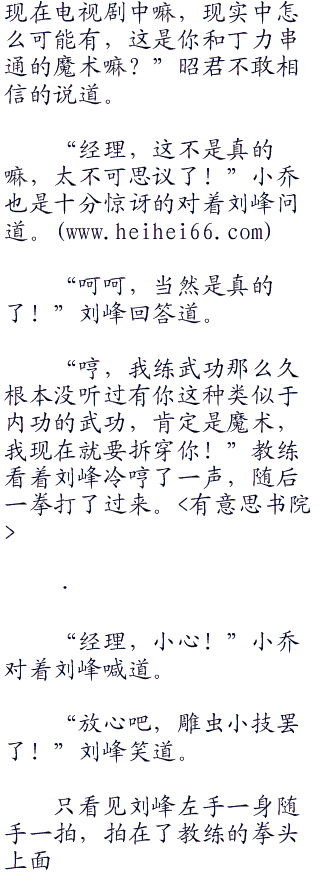 现在电视剧中嘛，现实中怎
么可能有，这是你和丁力串
通的魔术嘛？”昭君不敢相
信的说道。
“经理，这不是真的
嘛，太不可思议了！”小乔
也是十分惊讶的对着刘峰问
道。(www.heihei66.com)
“呵呵，当然是真的
了！”刘峰回答道。
“哼，我练武功那么久
根本没听过有你这种类似于
内功的武功，肯定是魔术，
我现在就要拆穿你！”教练
看着刘峰冷哼了一声，随后
一拳打了过来。<有意思书院
>
.
“经理，小心！”小乔
对着刘峰喊道。
“放心吧，雕虫小技罢
了！”刘峰笑道。
只看见刘峰左手一身随
手一拍，拍在了教练的拳头
上面